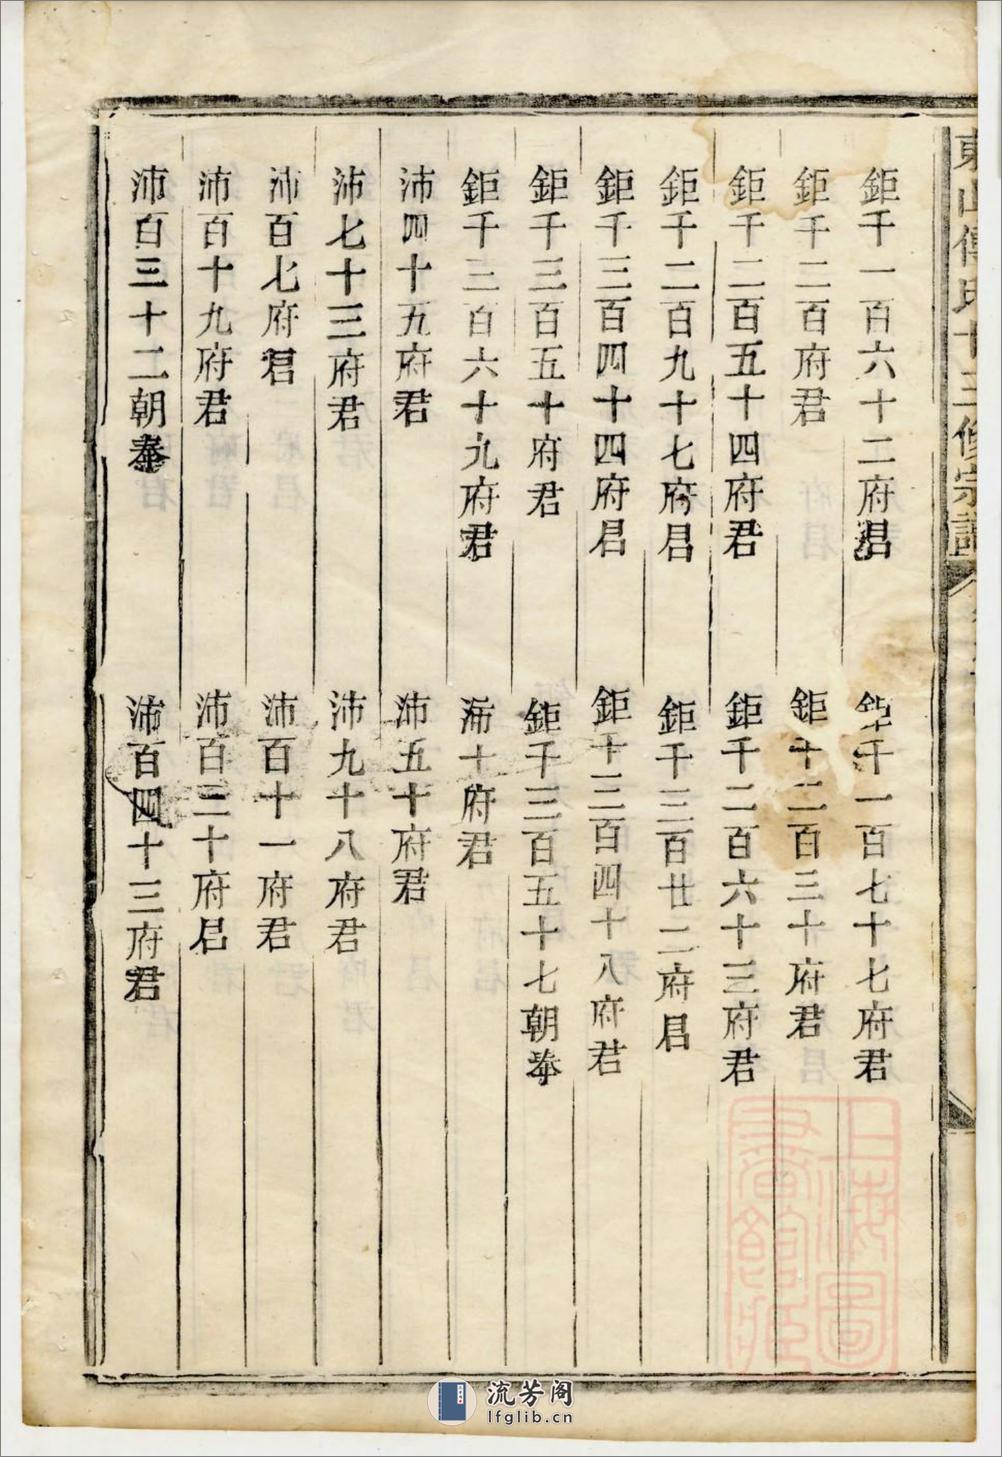 東山傅氏十三修宗譜
鉅千一百六十二府君　鉅千一百七十七府君
鉅千二百府君　鉅千二百三十府君
鉅千二百五十四府君　鉅千二百六十三府君
鉅千二百九十七府君　鉅千三百廿二府君
鉅千三百四十四府君　鉅千三百四十八府君
鉅千三百五十府君　鉅千三百五十七朝奉
鉅千三百六十九府君　沛十府君
沛四十五府君　沛五十府君
沛七十三府君　沛九十八府君
沛百七府君　沛百十一府君
沛百十九府君　沛百三十府君
沛百三十二朝奉　沛百四十三府君
上海圖
書館藏
流芳阁
lfglib.cn